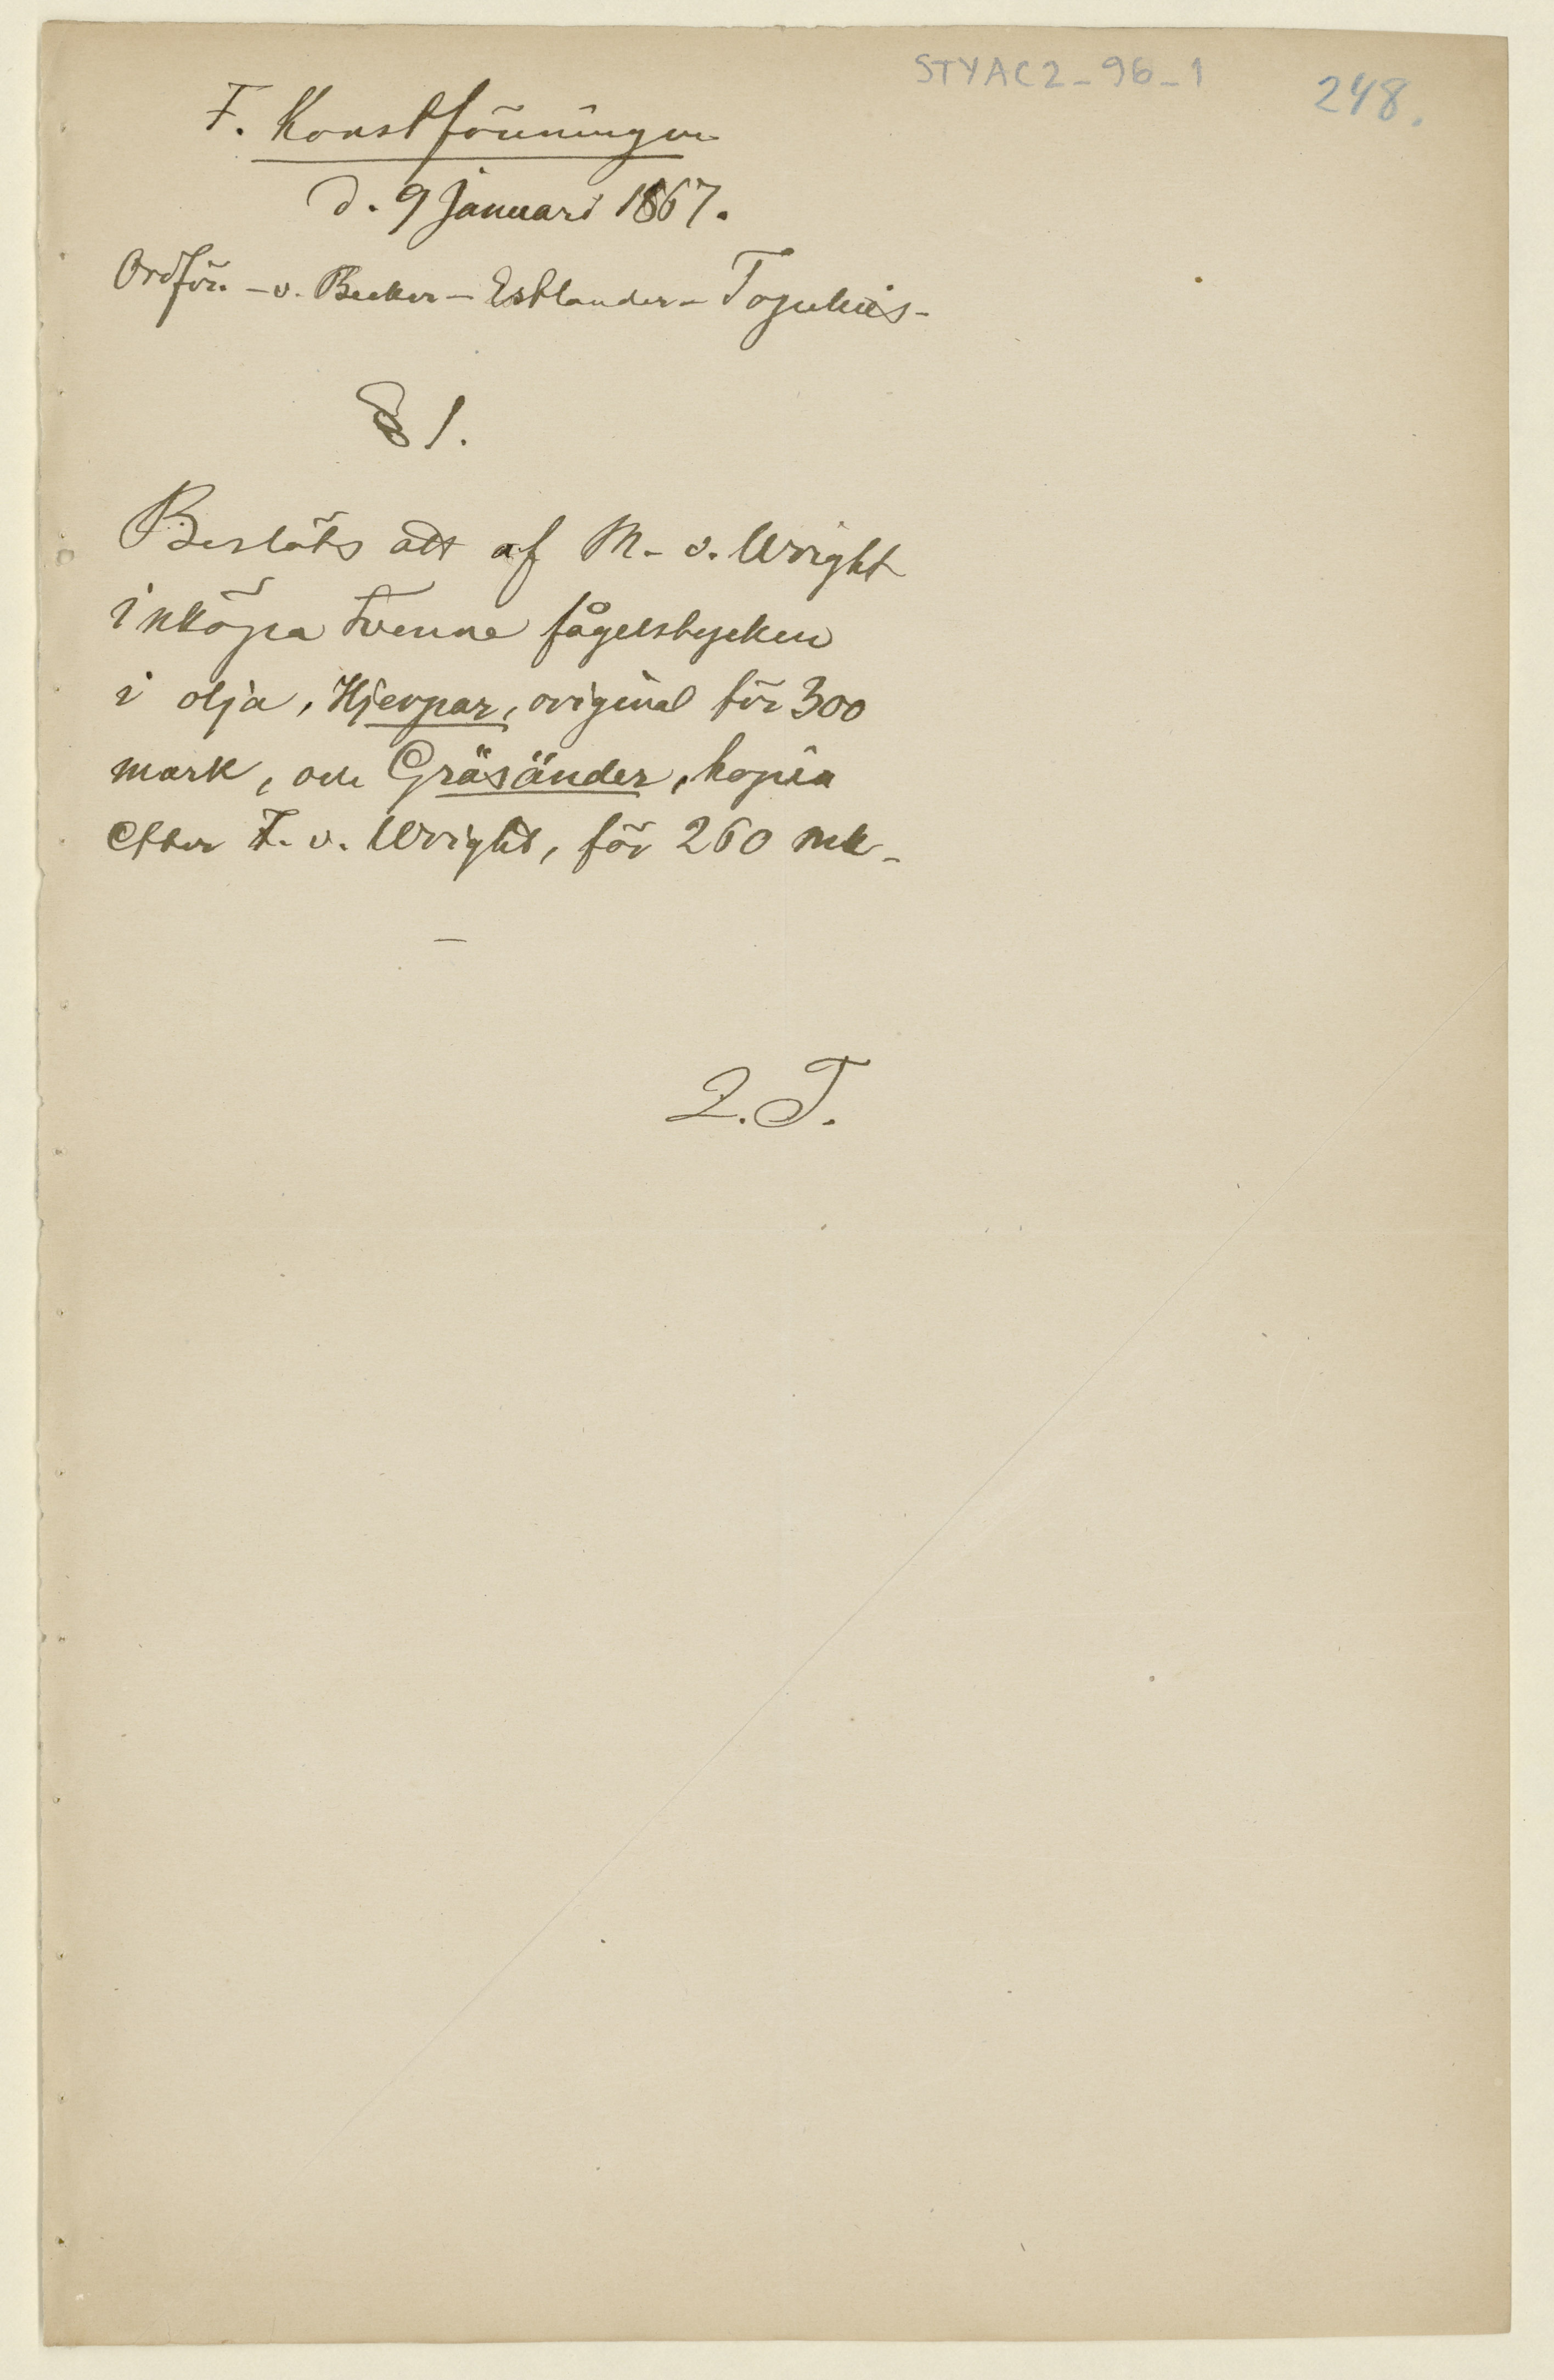 STYAC2_96_1
248.
F. Konstföreningen
d. 9 Januari 1867.
Ordför. – v. Becker – Estlander – Topelius –
§ 1.
Beslöts att af M. v. Wright
inköpa tvenne fågelstycken
i olja, Hjerpar, original för 300
mark, och Gräsänder, kopia
efter F. v. Wright, för 260 mk –
–
Z. T.